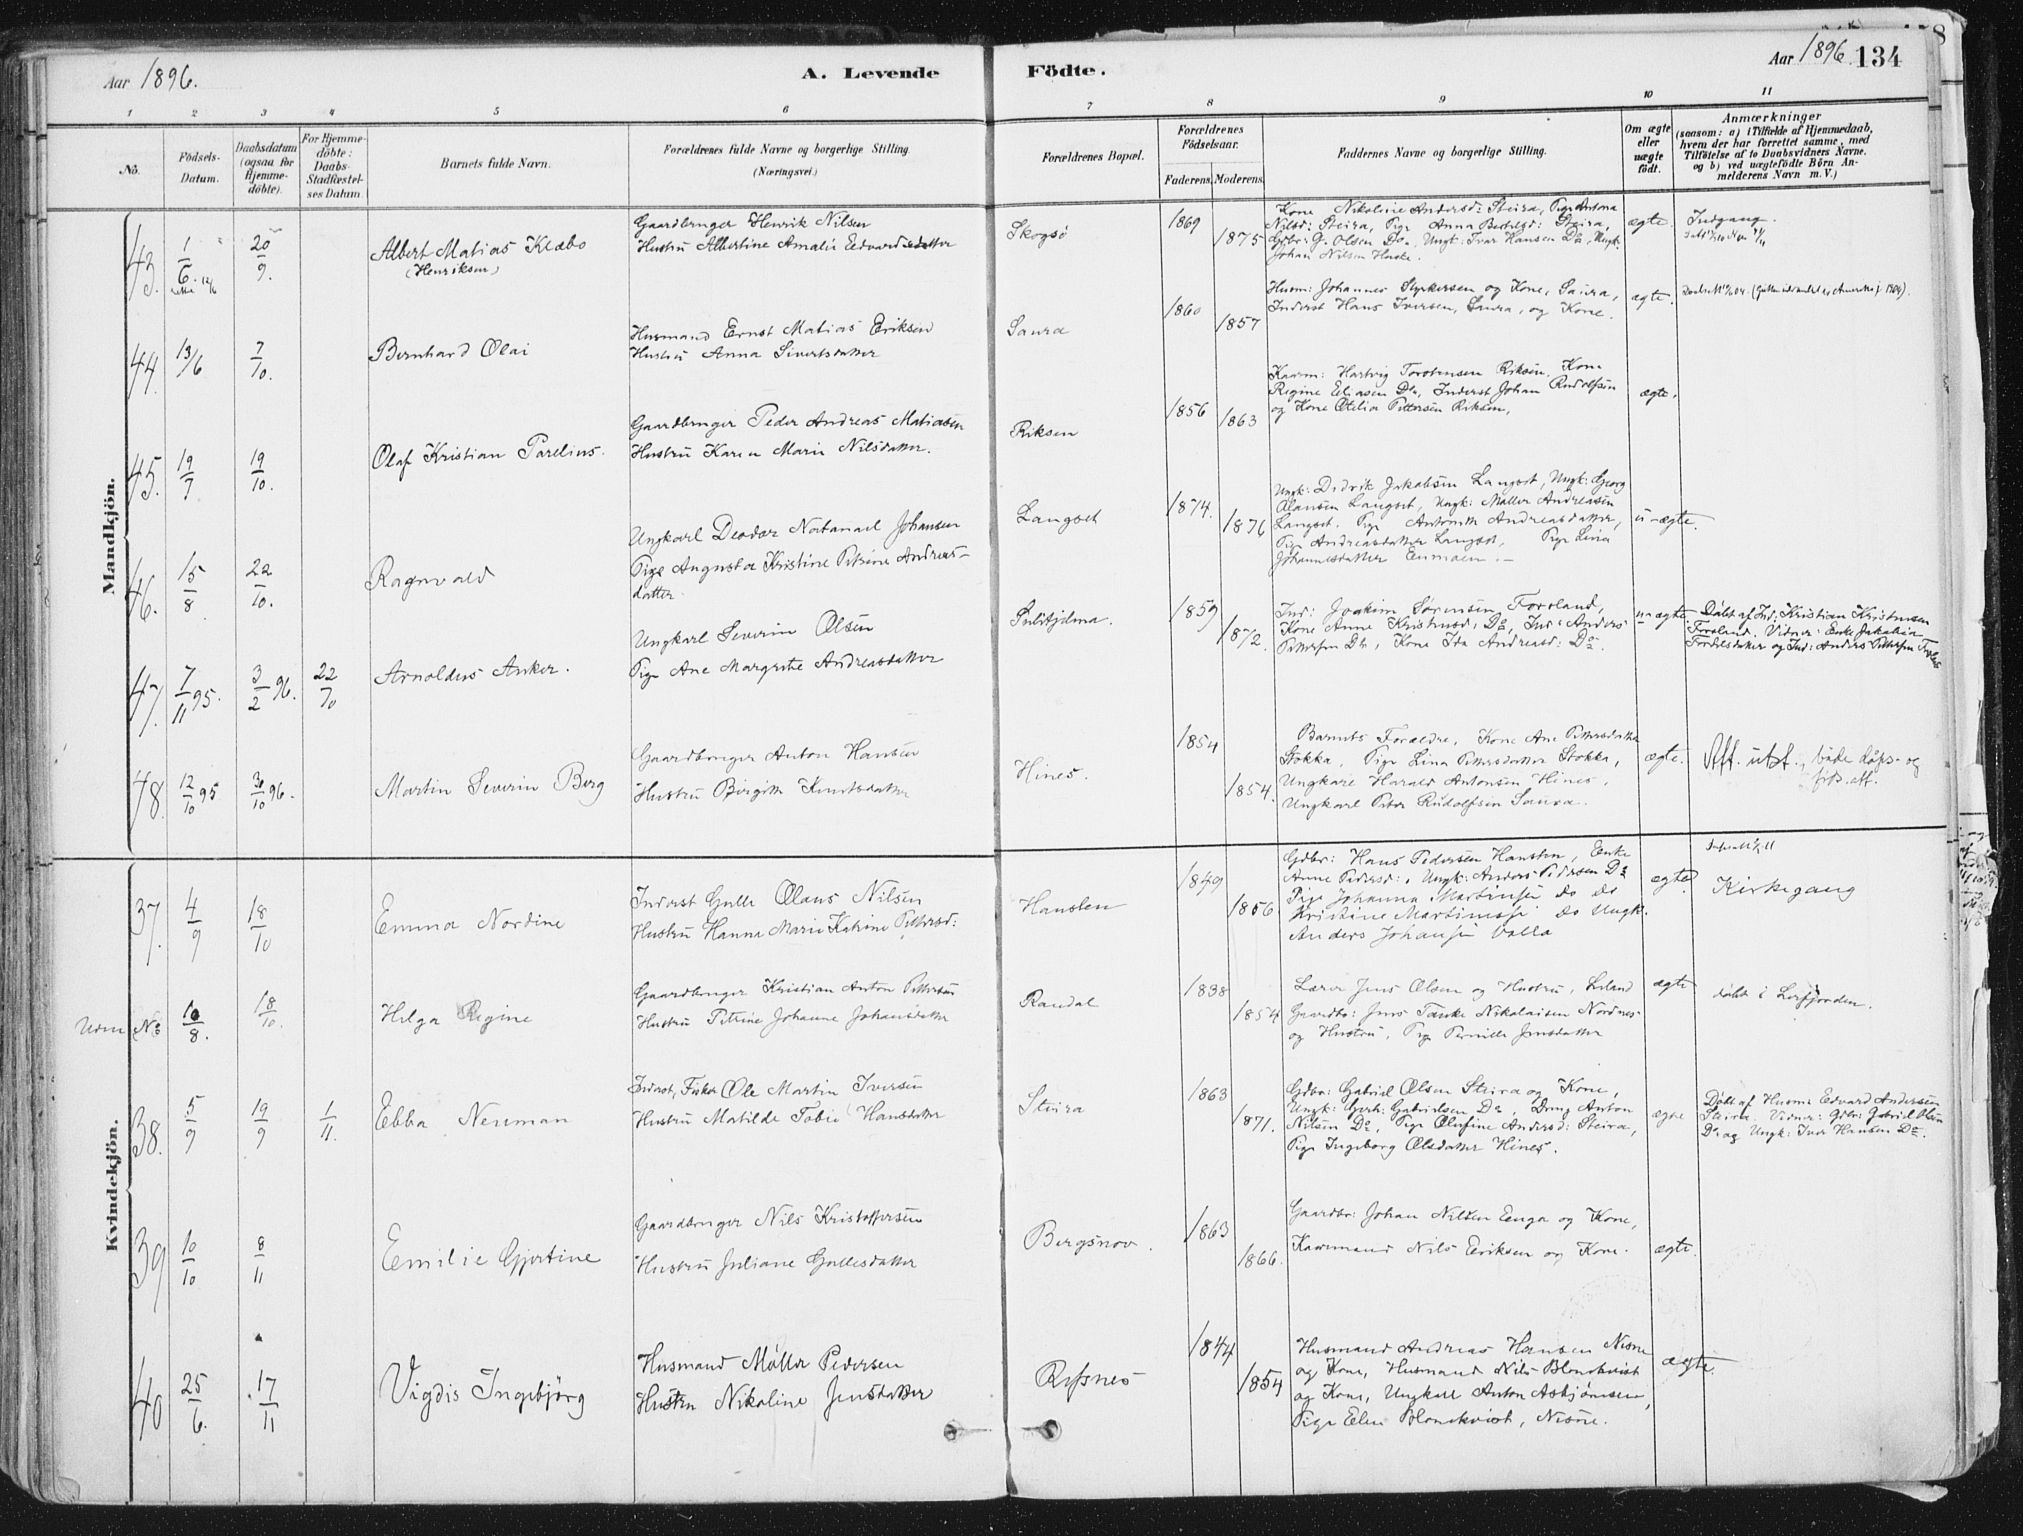 Aar 1896.
A. Levende
Födte.
Aar 1896. 134
1 2 3 4 5 6 7 8 9 10 11
No.
Födsels-
Datum.
Daabsdatum
(ogsaa for
Hjemme-
döbte).
For Hjemme-
döbte:
Daabs-
Stadfæstel-
ses Datum.
Barnets fulde Navn.
Forældrenes fulde Navne og borgerlige Stilling
(Næringsvei.)
Forældrenes Bopæl.
Forældrenes
Födselsaar.
Faderens. Moderens.
Faddernes Navne og borgerlige Stilling.
Om ægte
eller
uægte
födt.
Anmærkninger
(saasom: a) i Tilfælde af Hjemmedaab,
hvem der har forrettet samme, med
Tilföielse af to Daabsvidners Navne.
og b) ved uægtefödte Börn An-
melderens Navn m. V.)
Mandkjön.
43. 1/6 20/9.
Albert Matias Klæbo
(Henriksen)
Gaardbruger Henrik Nilsen
Hustru Albertine Amalie Edvardsdatter
Skogsö
1869
1875
Kone Nikoline Andersd: Steira, Pige Antona
Nilsd: Steira, Pige Anna Bertelsd: Steira,
Gdbr: G. Olsen Do, Ungk: Ivar Hansen Do, Ungk:
Johan Nilsen
ægte.
Indgang.
44. 13/6 7/10.
Bernhard Olai
Husmand Ernst Matias Eriksen
Hustru Anna Sivertsdatter
Saura
1860
1857
Husm: Johannes Styrkersen og Kone, Saura,
Inderst Hans Iversen, Saura, og Kone.
ægte.
45. 19/7 19/10.
Olaf Kristian Parelius.
Gaardbruger Peder Andreas Matiasen
Hustru Karen Marie Nilsdatter.
Riksen
1856
1863
Kaarm: Hartvig Torstensen Riksen, Kone
Regine Eliasen Do, Inderst Johan Rudolfsen
og Kone Otelia Pettersen Riksen,
ægte.
46. 15/8 22/10.
Ragnvald
Ungkarl Deodor Natanael Johansen
Pige Augusta Kristine Petrine Andreas-
datter
Langset
1874.
1876
Ungk: Didrik Jakobsen Langset, Ungk: Georg
Olausen Langset, Ungk: Møller Andreasen
Langset. Pige Antonette Andreasdatter,
Pige Andreasdatter Langset, Pige Lina
Johannesdatter Enmoen.
u-ægte.
47. 7/11 95. 3/2 96. 22/10
Arnoldus Anker.
Ungkarl Severin Olsen
Pige Ane Margrete Andreasdatter
Sulitjelma.
1859
1872.
Ind: Joakim Sørensen, Forsland,
Kone Anne Kristensd: Do, Ind: Anders
Pettersen Do, Kone Ida Andreasd: Do.
u-ægte.
Døbt af Ind: Kristian Kristensen
Forsland. Vidner: Enke Jakobia
og Ind: Anders Pettersen
48. 12/10 95 3/10 96.
Martin Severin Berg
Gaardbruger Anton Hansen
Hustru Birgitte Knutsdatter
Hines.
1854
1854.
Barnets Forældre, Kone Ane Pettersdatter
Stokka, Pige Lina Pettersdatter Stokka,
Ungkarl Harald Antonsen Hines,
Ungkarl Peter Rudolfsen Saura.
ægte.
Aft. utst., både dåps- og
föds.att.
Kvindekjön.
37. 4/9 18/10
Emma Nordine
Inderst Gulle Olaus Nilsen
Hustru Hanna Marie Katrine Pettersd:
Hanslen
1849
1856.
Gdbr: Hans Pedersen Hanslen, Enke
Anne Pedersd:, Ungk: Anders Pedersen Do
Pige Johanna Martinsen do do
Kristine Martinussen do Ungk.
Anders Johansen Valla
ægte
Kirkegang
Uden No 10/8. 18/10.
Helga Regine
Gaardbruger Kristian Anton Pettersen
Hustru Petrine Johanne Johansdatter
Randal
1838
1854
Lærer Jens Olsen og Hustru, Leland
Gaardbr: Jens Tanke Nikolaisen Nordnes
og Hustru, Pige Pernille Jensdatter
ægte
døbt i Leirfjorden.
38. 5/9 19/9 1/11.
Ebba Neuman
Inderst, Fisker Ole Martin Iversen
Hustru Matilde Tobie Hansdatter
Steira
1863
1871.
Gdbr: Gabriel Olsen Steira og Kone,
Ungk: Gerh: Gabrielsen Do, Dreng Anton
Nilsen Do, Pige Olufine Andersd: Steira,
Pige Ingeborg Olsdatter Hines.
ægte
Döbt af Husm: Edvard Andersen
Steira. Vidner: Gdbr: Gabriel Olsen
Do og Ungk: Iver Hansen Do.
39 10/10 8/11
Emilie Gjertine
Gaardbruger Nils Kristoffersen
Hustru Juliane Gullesdatter
Bergsnov.
1863
1866.
Gaardbr: Johan Nilsen Enga og Kone,
Kaarmand Nils Eriksen og Kone.
ægte.
40 25/6. 17/11
Vigdis Ingebjörg
Husmand Møller Pedersen
Hustru Nikoline Jensdatter
Refsnes
1844
1854
Husmand Andreas Hansen Nesne
og Kone, Husmand Nils Blomkvist
og Kone, Ungkarl Anton Asbjørnsen,
Pige Elen Blomkvist, Nesne.
ægte.